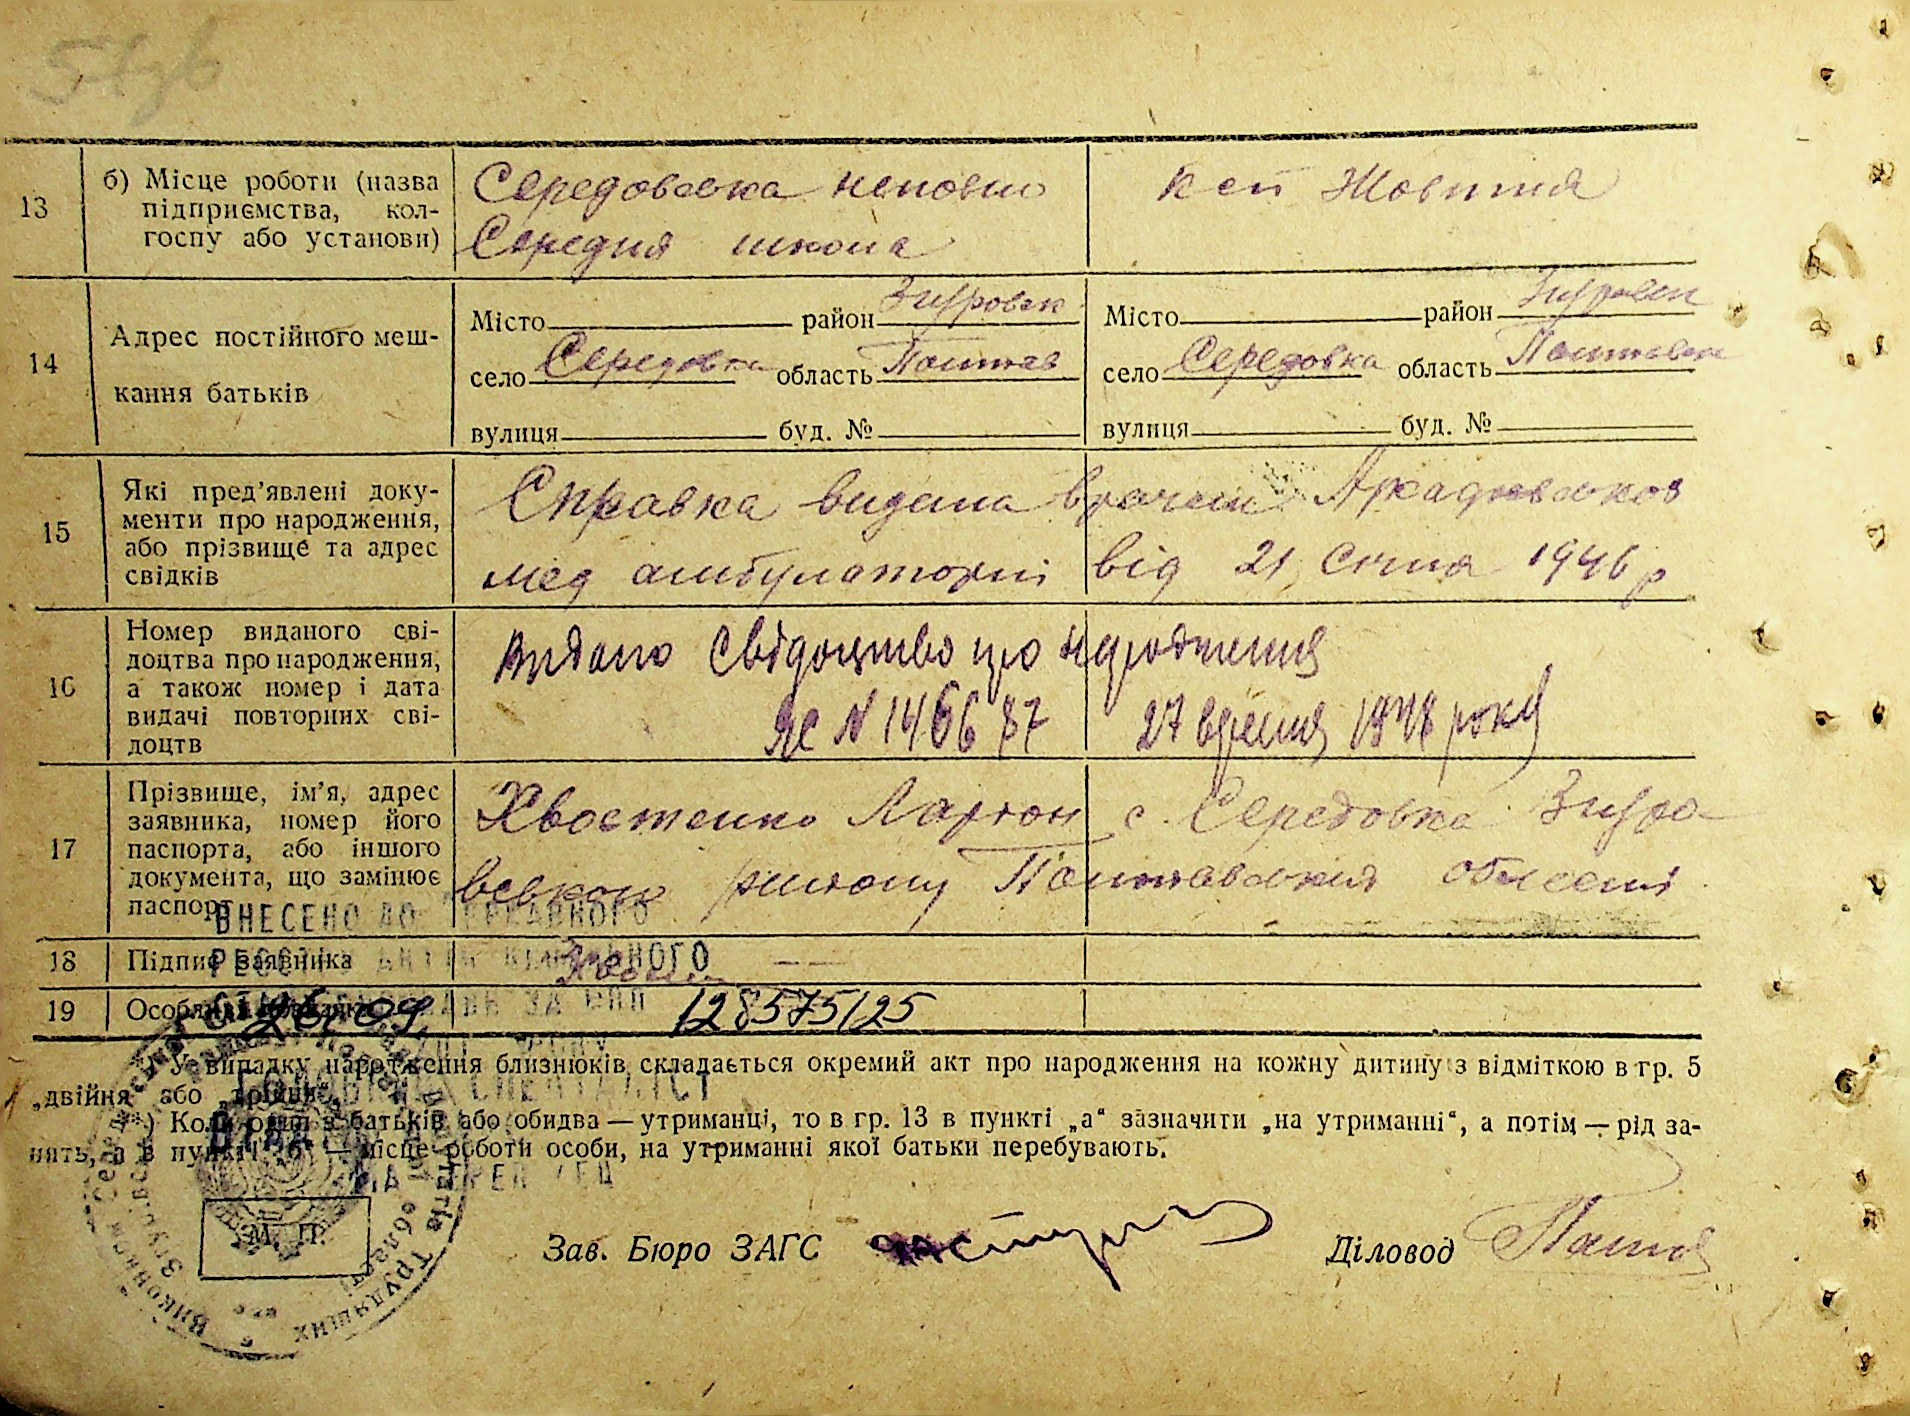 13
б) Місце роботи (назва
підприємства, кол-
госпу або установи)
Середовска неповно
Середня школа
Жовтня
14
Адрес постійного меш-
кання батьків
Місто район Згуровск
село Середовка область Полтав
вулиця буд. №
Місто район Згуровск
село Середовка область Полтавск
вулиця буд. №
15
Які пред’явлені доку-
менти про народження,
або прізвище та адрес
свідків
Справка видана врачем
мед амбулаторні від 21 Січня 1946 р
16
Номер виданого сві-
доцтва про народження,
а також номер і дата
видачі повторних сві-
доцтв
Видано Свідоцтво про народження
N 146687 27 вересня 1948 року
17
Прізвище, ім’я, адрес
заявника, номер його
паспорта, або іншого
документа, що замінює
паспорт
Хвостенко Ларион с. Середовка Згуро
вского району Полтавская области
ВНЕСЕНО ДО ДЕРЖАВНОГО
18
Підпис заявника
19
Особливі
26.09
128575125
*) У випадку народження близнюків складається окремий акт про народження на кожну дитину з відміткою в гр. 5
„двійня“ або „трійня“.
**) Коли один з батьків або обидва — утриманці, то в гр. 13 в пункті „а“ зазначити „на утриманні“, а потім — рід за-
нять, а в пункті „б“ — місце роботи особи, на утриманні якої батьки перебувають.
ГОЛОВНИЙ СПЕЦІАЛІСТ
М. П.
Зав. Бюро ЗАГС
Діловод